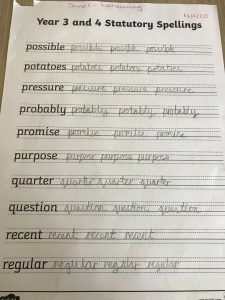 Year 3 and 4 Statutory Spellings
possible possible possible possible
potatoes potatoes potatoes potatoes
pressure pressure pressure pressure
probably probably probably probably
promise promise promise promise
purpose purpose purpose purpose
quarter quarter quarter quarter
question question question question
recent recent recent recent
regular regular regular regular